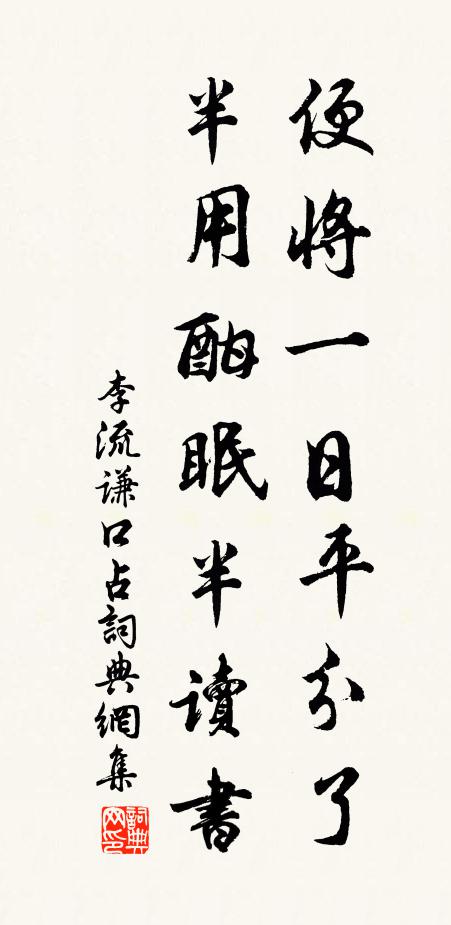 便將一日平分了
半用酣眠半讀書
李流謙口占詞典網集
詞典網印